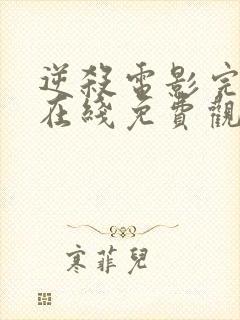 逆殺電影完
在綫免費觀
寒菲兒